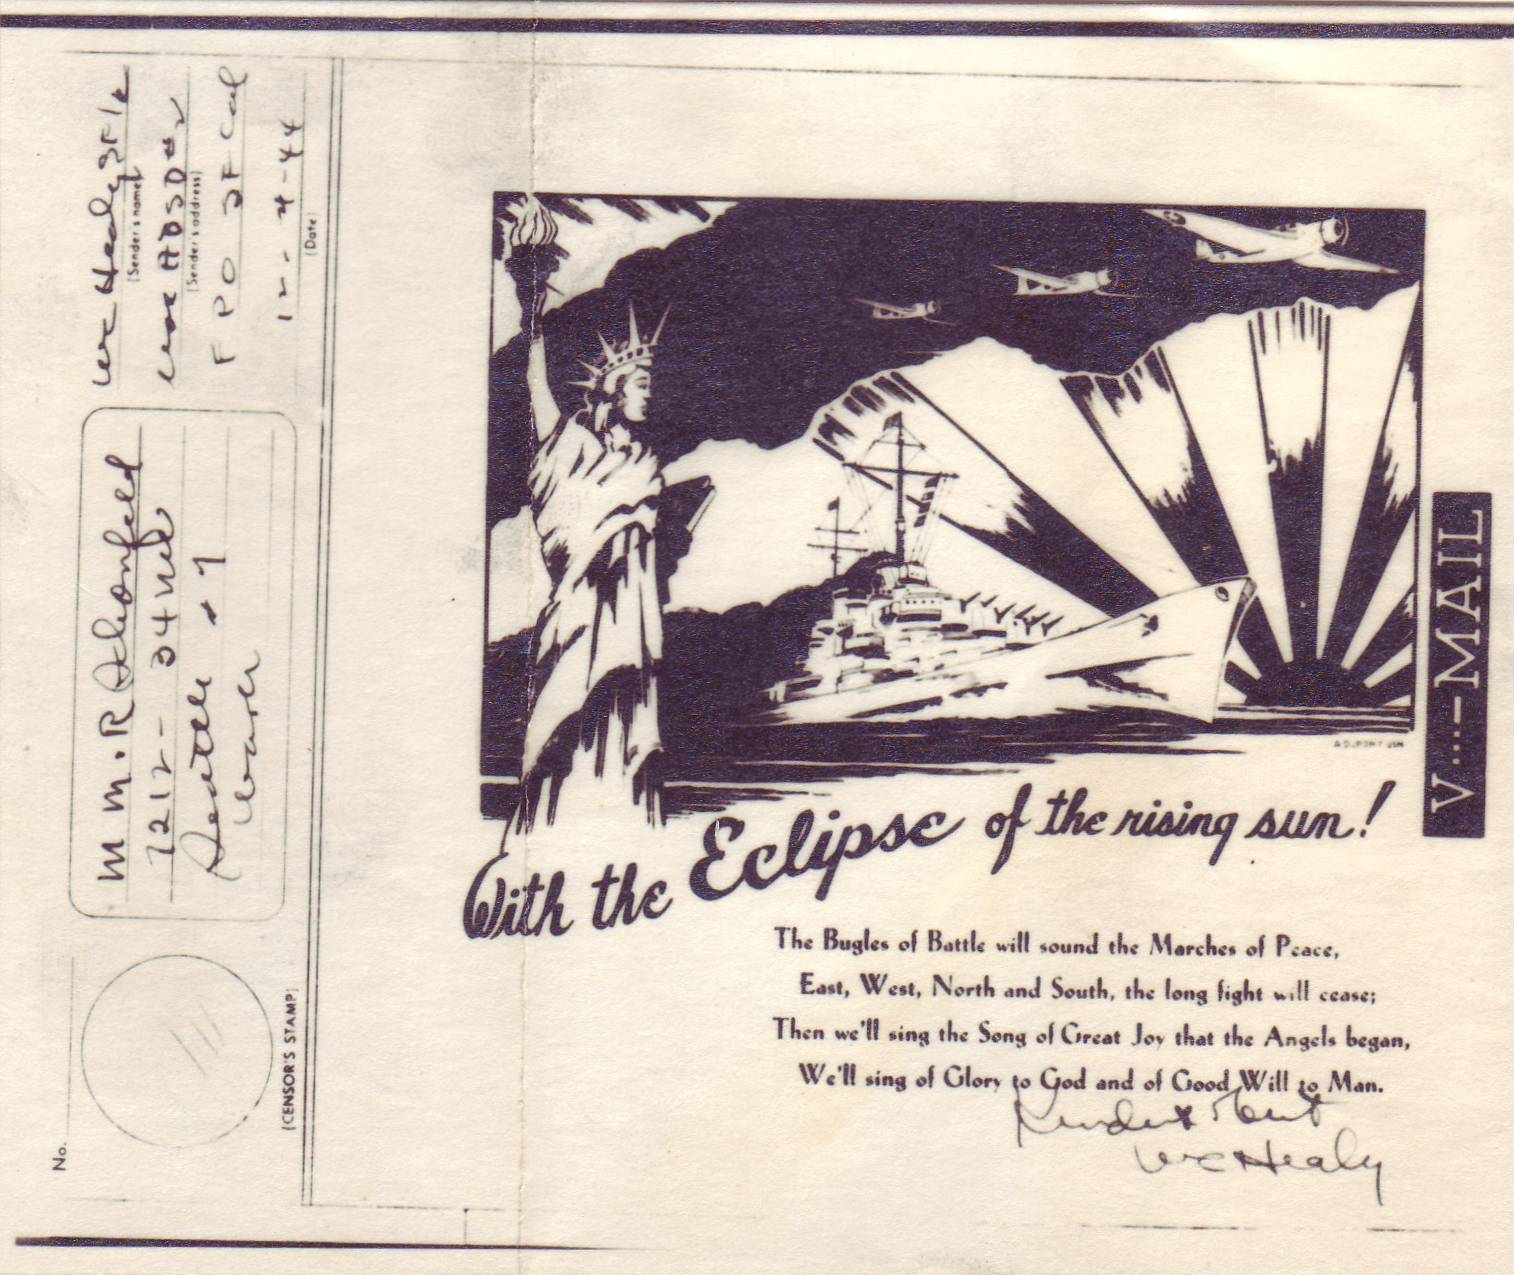 WC Healy SF1c
(Sender's name)
USNABSD #2
(Sender's address)
F P O SF Cal
12-4-44
(Date)
M M. R Schonfeld
7212 - 34 
Seattle
Wash
(CENSOR'S STAMP)
No.
A DUPONT USN
V...-MAIL
With the Eclipse of the rising sun!
The Bugles of Battle will sound the Marches of Peace,
East, West, North and South, the long fight will cease;
Then we'll sing the Song of Great Joy that the Angels began,
We'll sing of Glory to God and of Good Will to Man.
WC Healy